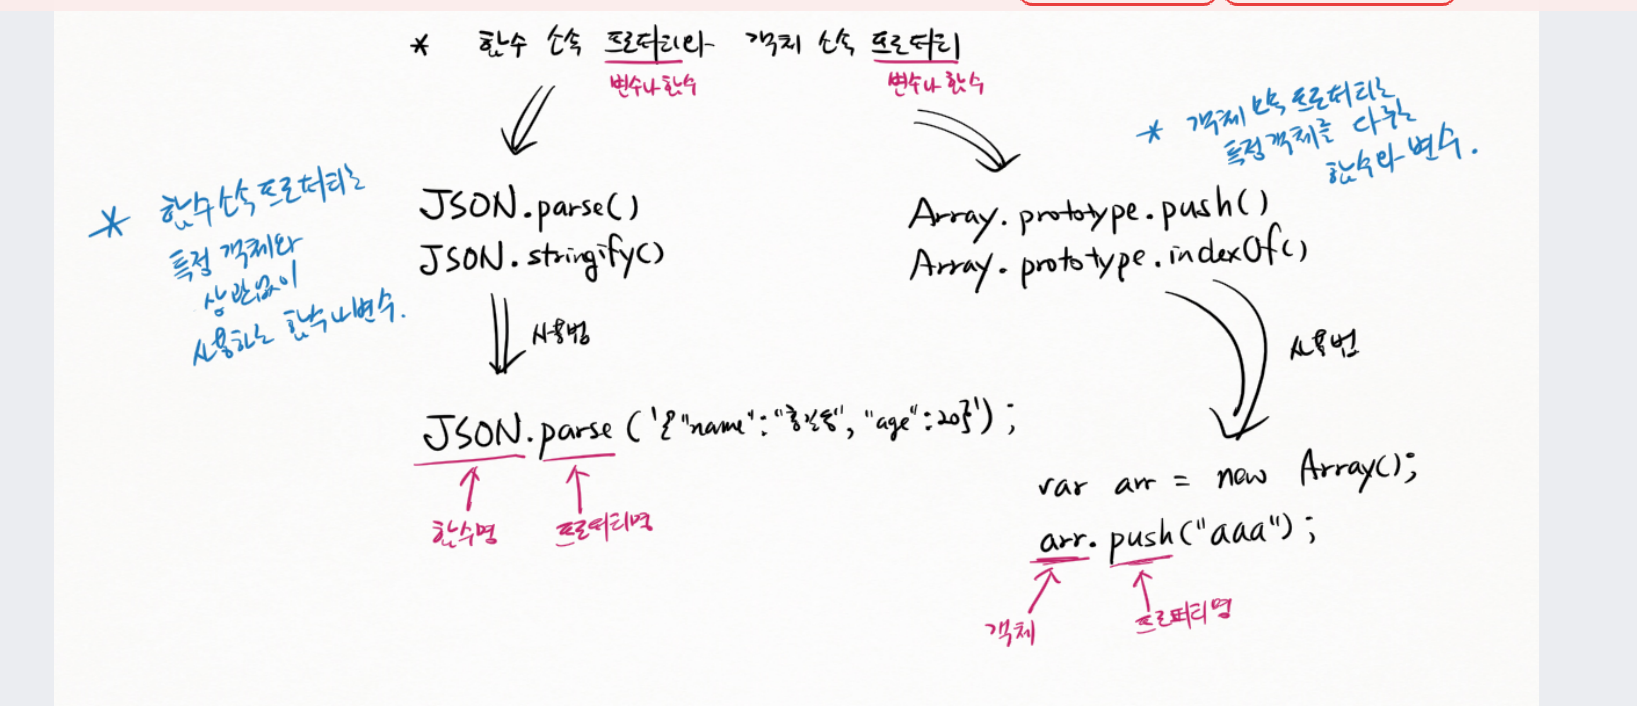 * 함수 소속 프로퍼티와 객체 소속 프로퍼티
변수나 함수
변수나 함수
* 객체 소속 프로퍼티는
특정 객체를 다루는
함수와 변수.
* 함수 소속 프로퍼티는
특정 객체와
상관없이
사용하는 함수나 변수.
JSON.parse()
JSON.stringify()
Array.prototype.push()
Array.prototype.indexOf()
사용법
사용법
JSON.parse('{"name":"홍길동", "age":20}');
함수명
프로퍼티명
var arr = new Array();
arr.push("aaa");
객체
프로퍼티명